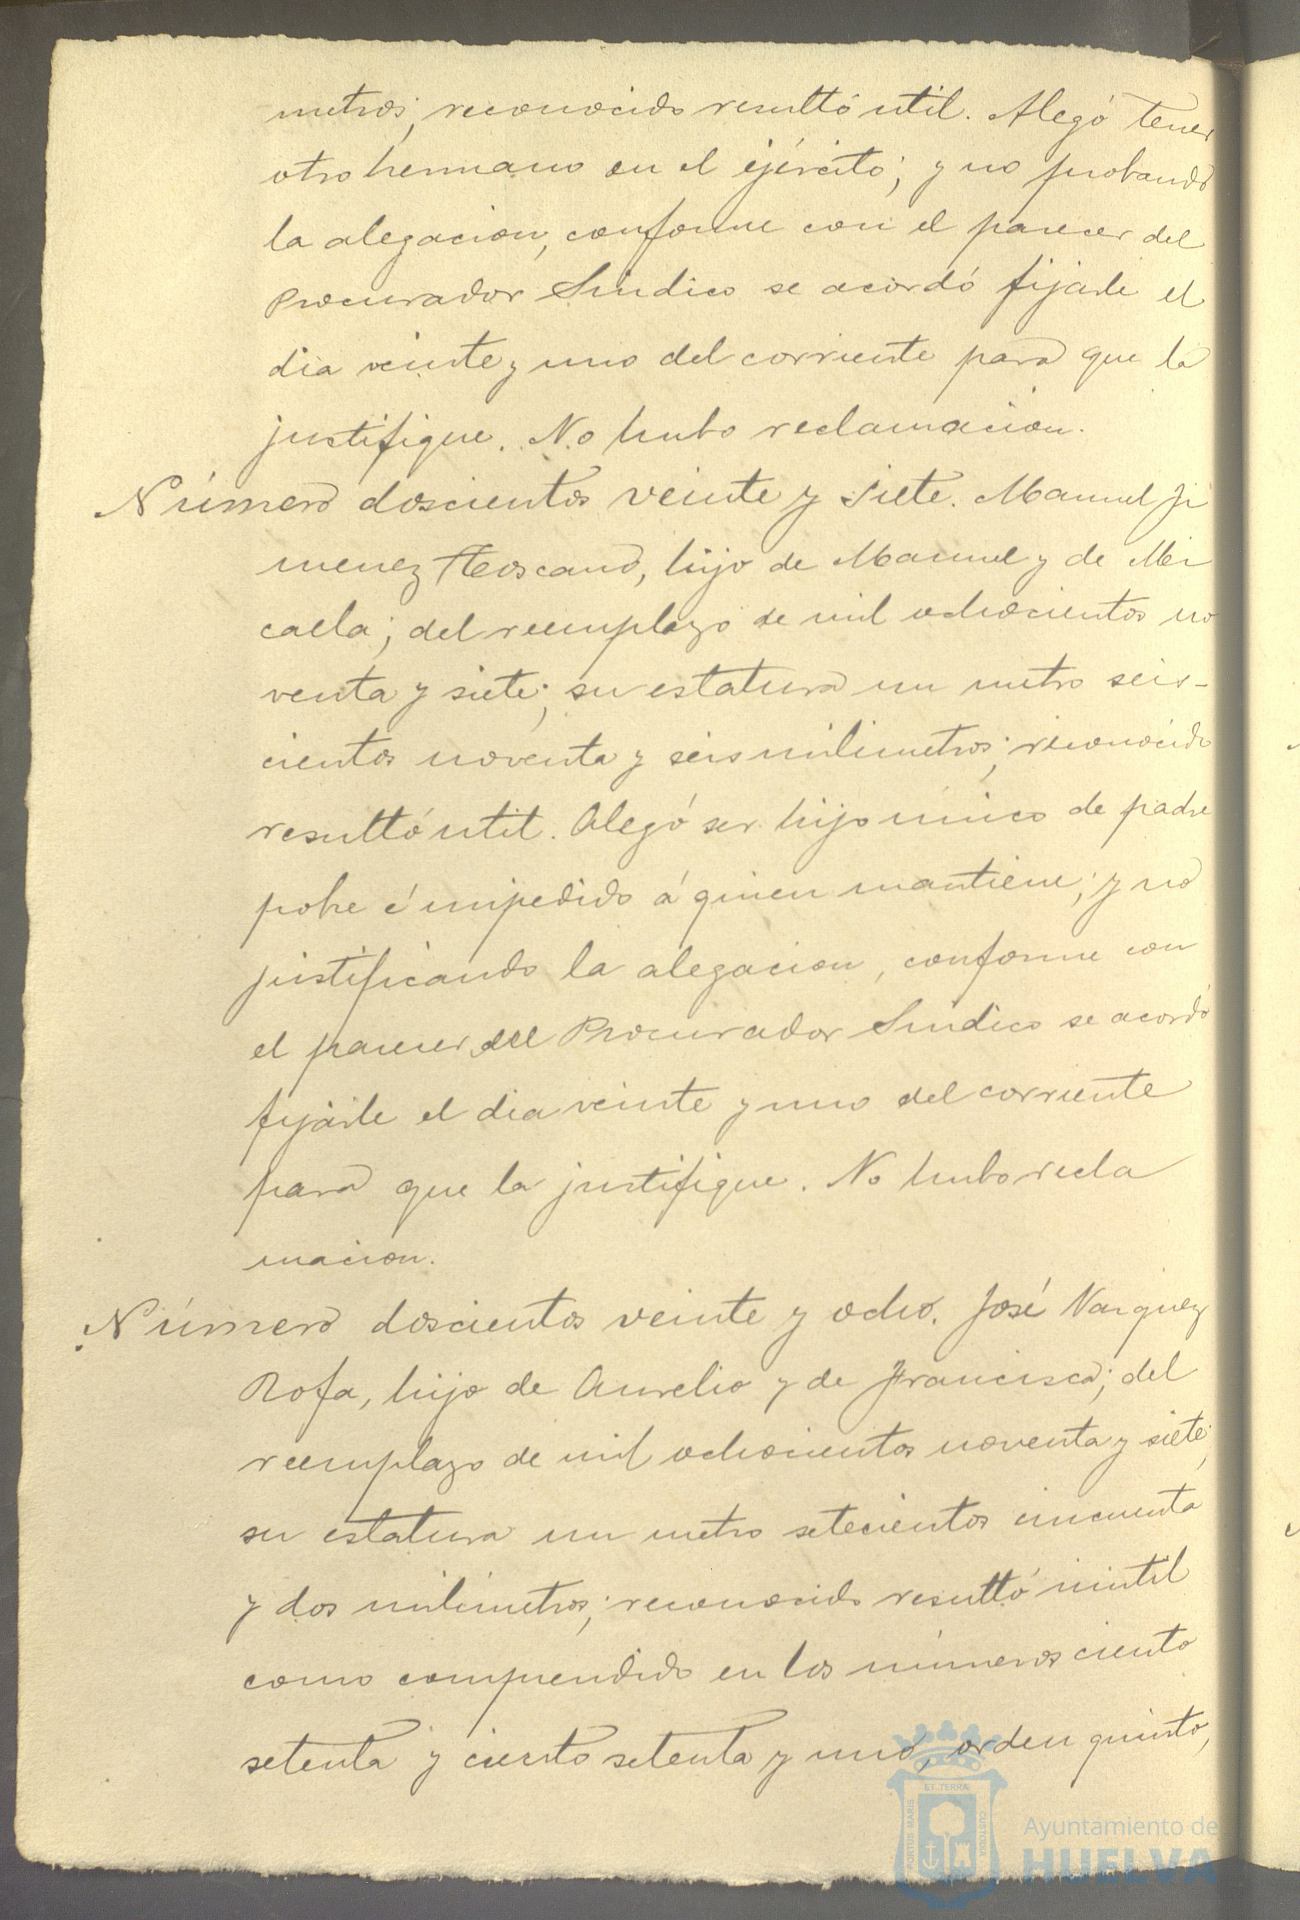 metros; reconocido resultó util. Alegó tener
otro hermano en el ejército; y no probando
la alegacion, conforme con el parecer del
Procurador Sindico se acordó fijarle el
dia veinte y uno del corriente para que la
justifique. No hubo reclamacion.
Número doscientos veinte y siete. Manuel Ji
menez Toscano, hijo de Manuel y de Mi
caela; del reemplazo de mil ochocientos no
venta y siete; su estatura un metro seis-
cientos noventa y seis milimetros; reconocido
resultó util. Alegó ser hijo único de padre
pobre é impedido á quien mantiene; y no
justificando la alegacion, conforme con
el parecer del Procurador Sindico se acordó
fijarle el dia veinte y uno del corriente
para que la justifique. No hubo recla
macion.
Número doscientos veinte y ocho. José Vazquez
Rofa, hijo de Aurelio y de Francisca; del
reemplazo de mil ochocientos noventa y siete;
su estatura un metro setecientos cincuenta
y dos milimetros; reconocido resultó inutil
como comprendido en los números ciento
setenta y ciento setenta y uno, orden quinto,
ET TERRÆ
PORTUS MARIS
CUSTODIA
Ayuntamiento de
HUELVA